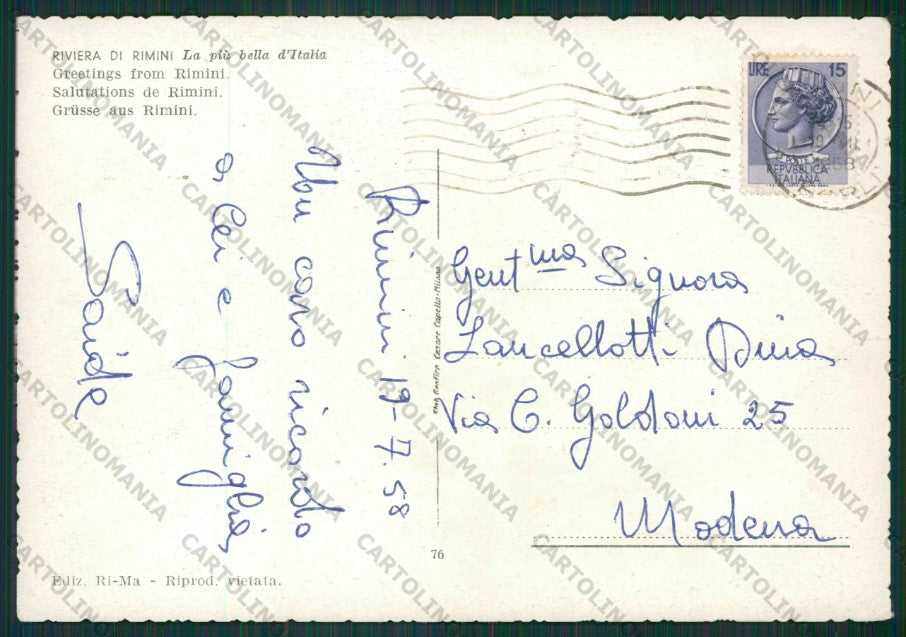 RIVIERA DI RIMINI La più bella d'Italia
Greetings from Rimini.
Salutations de Rimini.
Grüsse aus Rimini.
LIRE 15
REPVBBLICA
ITALIANA
Rimini 19-7.58
Un caro ricordo
a Lei e famiglia,
Saide
Gent.ma Signora
Lancellotti Dina
Via C. Goldoni 25
Modena
76
Ediz. Ri-Ma - Riprod. vietata.
CARTOLINOMANIA